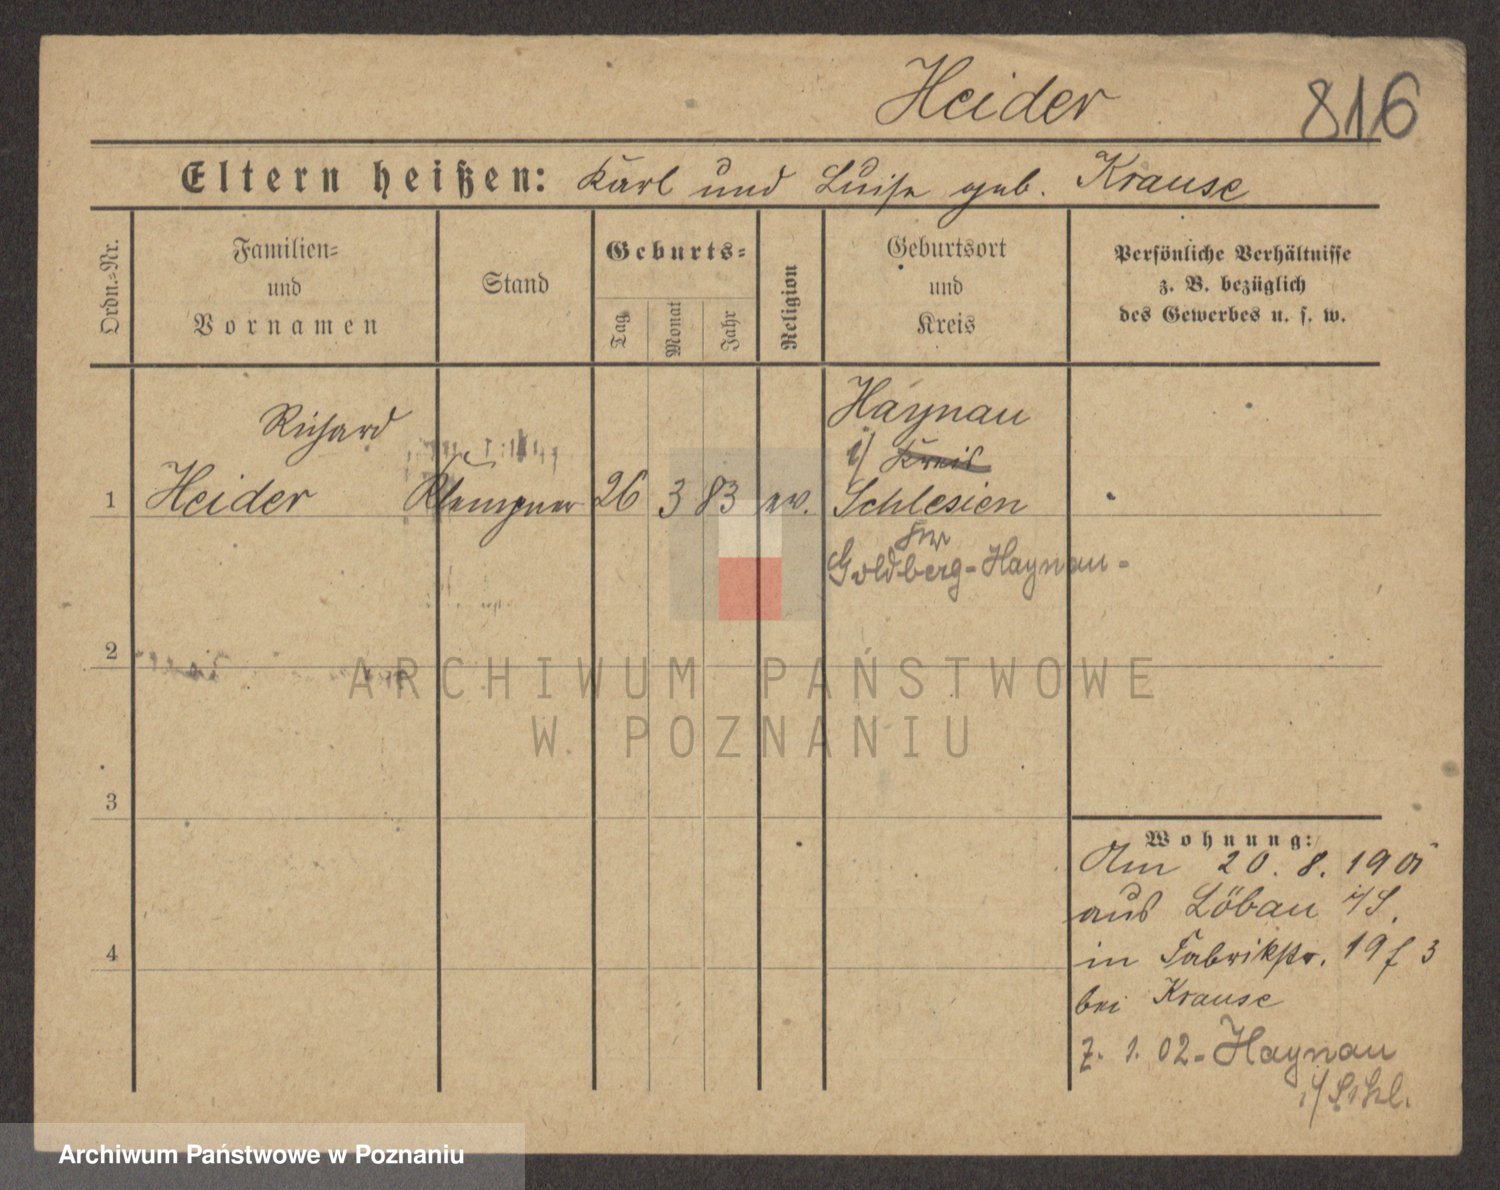 Heider 816
Eltern heißen: Karl und Luise geb. Krause
Ordn.=Nr.
Familien=
und
Vornamen
Stand
Geburts=
Tag
Monat
Jahr
Religion
Geburtsort
und
Kreis
Persönliche Verhältnisse
z. B. bezüglich
des Gewerbes u. s. w.
Richard
1 Heider Klempner 26 3 83 ev.
Haynau
i/ Kreis
Schlesien
Goldberg-Haynau-
2
3
4
Wohnung:
Am 20. 8. 1901
aus Löbau i/S.
in Fabrikstr. 19 f 3
bei Krause
7. 1. 02- Haynau
i/Schl.
ARCHIWUM PAŃSTWOWE
W POZNANIU
Archiwum Państwowe w Poznaniu